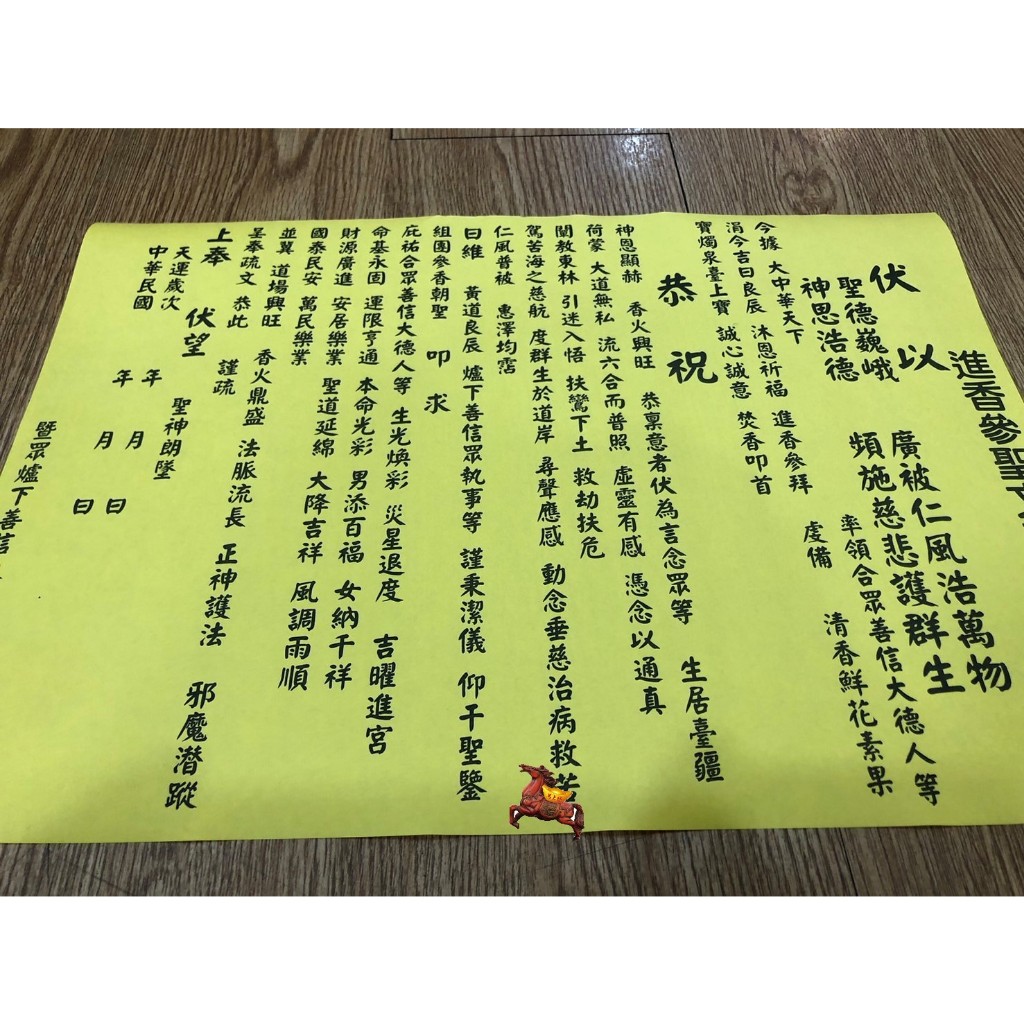 進香參聖
伏以
聖德巍峨 廣被仁風浩萬物
神思浩德 頻施慈悲護群生
今據 大中華天下 率領合眾善信大德人等
涓今吉日良辰 沐恩祈福 進香參拜 虔備 清香鮮花素果
寶燭泉臺上寶 誠心誠意 焚香叩首
恭祝
神恩顯赫 香火興旺 恭稟意者伏為言念眾等 生居臺疆
荷蒙 大道無私 流六合而普照 虛靈有感 憑念以通真
闡教東林 引迷入悟 扶鸞下土 救劫扶危
駕苦海之慈航 度群生於道岸 尋聲應感 動念垂慈治病救苦
仁風普被 惠澤均霑
日維 黃道良辰 爐下善信眾執事等 謹秉潔儀 仰干聖鑒
組團參香朝聖 叩求
庇祐合眾善信大德人等 生光煥彩 災星退度 吉曜進宮
命基永固 運限亨通 本命光彩 男添百福 女納千祥
財源廣進 安居樂業 聖道延綿 大降吉祥 風調雨順
國泰民安 萬民樂業
並冀 道場興旺 香火鼎盛 法脈流長 正神護法 邪魔潛蹤
呈奉疏文 恭此 謹疏
上奉 伏望 聖神朗墜
天運歲次 年 月 日
中華民國 年 月 日
暨眾爐下善信